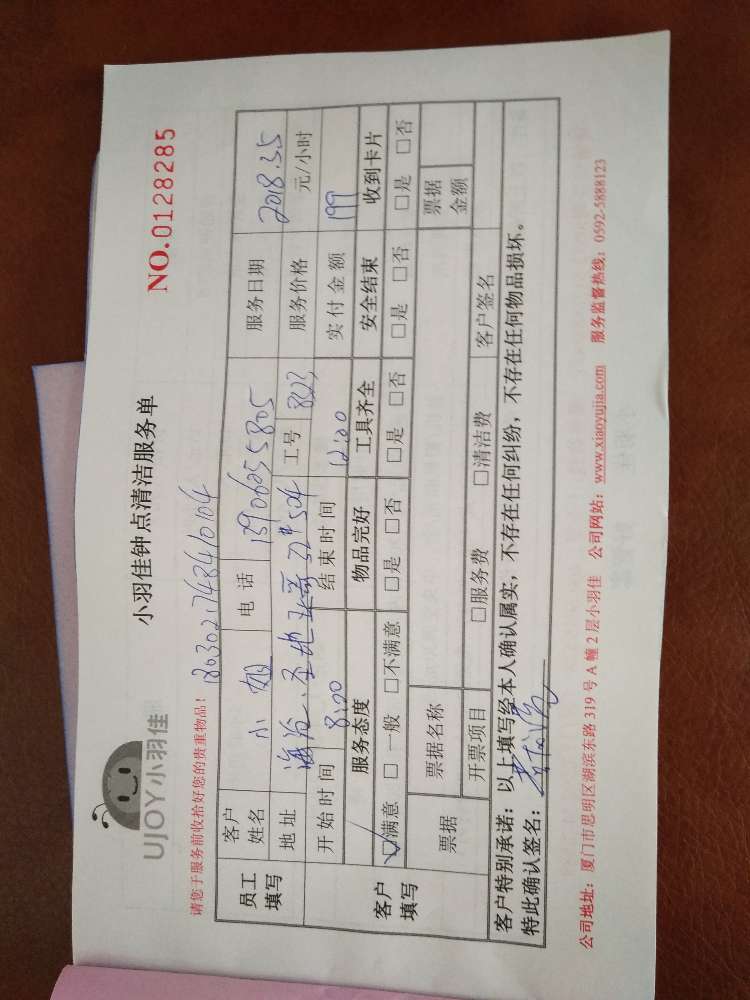 UJOY小羽佳
小羽佳钟点清洁服务单
NO.0128285
请您于服务前收拾好您的贵重物品!
1803021748410104
员工填写
客户姓名 小姐 电话 13906055805 服务日期 2018.3.5
地址 32# 504 工号 8223 服务价格 元/小时
开始时间 8:00 结束时间 12:00 实付金额 199
客户填写
服务态度 物品完好 工具齐全 安全结束 收到卡片
☑满意 □一般 □不满意 □是 □否 □是 □否 □是 □否 □是 □否
票据 票据名称 票据金额
开票项目 □服务费 □清洁费 客户签名
客户特别承诺:以上填写经本人确认属实,不存在任何纠纷,不存在任何物品损坏。
特此确认签名:
公司地址:厦门市思明区湖滨东路319号A幢2层小羽佳 公司网站:www.xiaoyujia.com 服务监督热线:0592-5888123